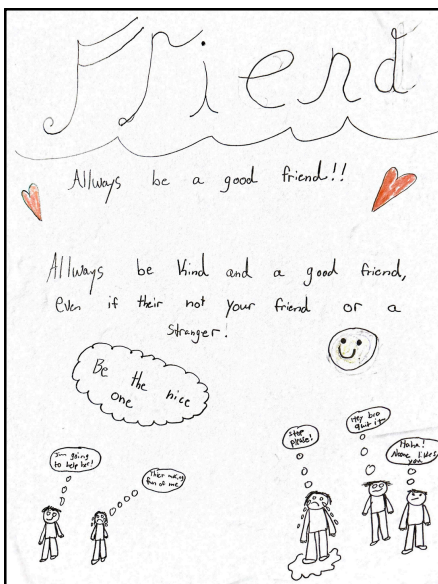 Friend
Allways be a good friend!!
Allways be kind and a good friend,
even if their not your friend or a
stranger!
Be the nice
one
I'm going
to help her!
fun of me
Stop
please!
Hey bro
quit it
Haha!
likes
you